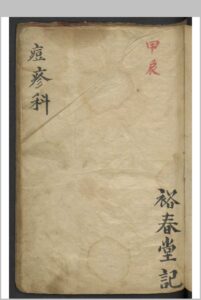 甲辰
痘疹科
裕春堂記